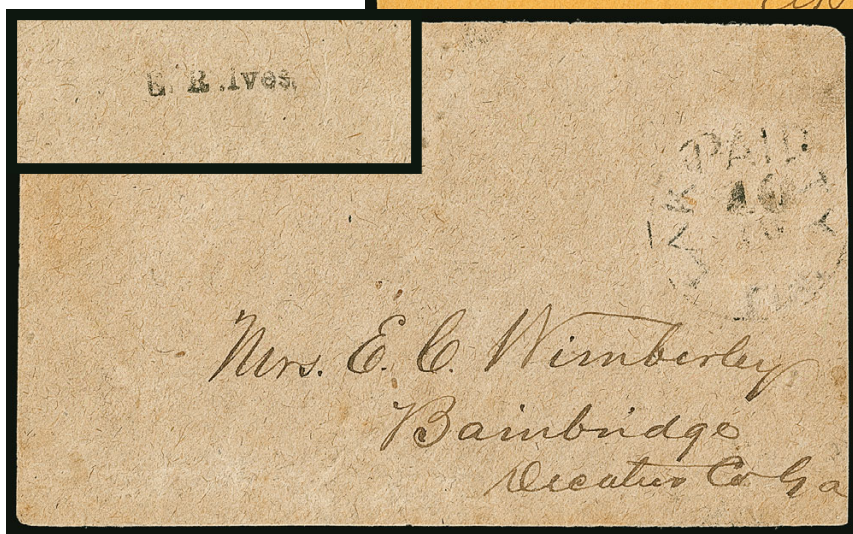 E. R. Ives.
PAID
10
Mrs. E. C. Wimberley
Bainbridge
Decatur Co Ga